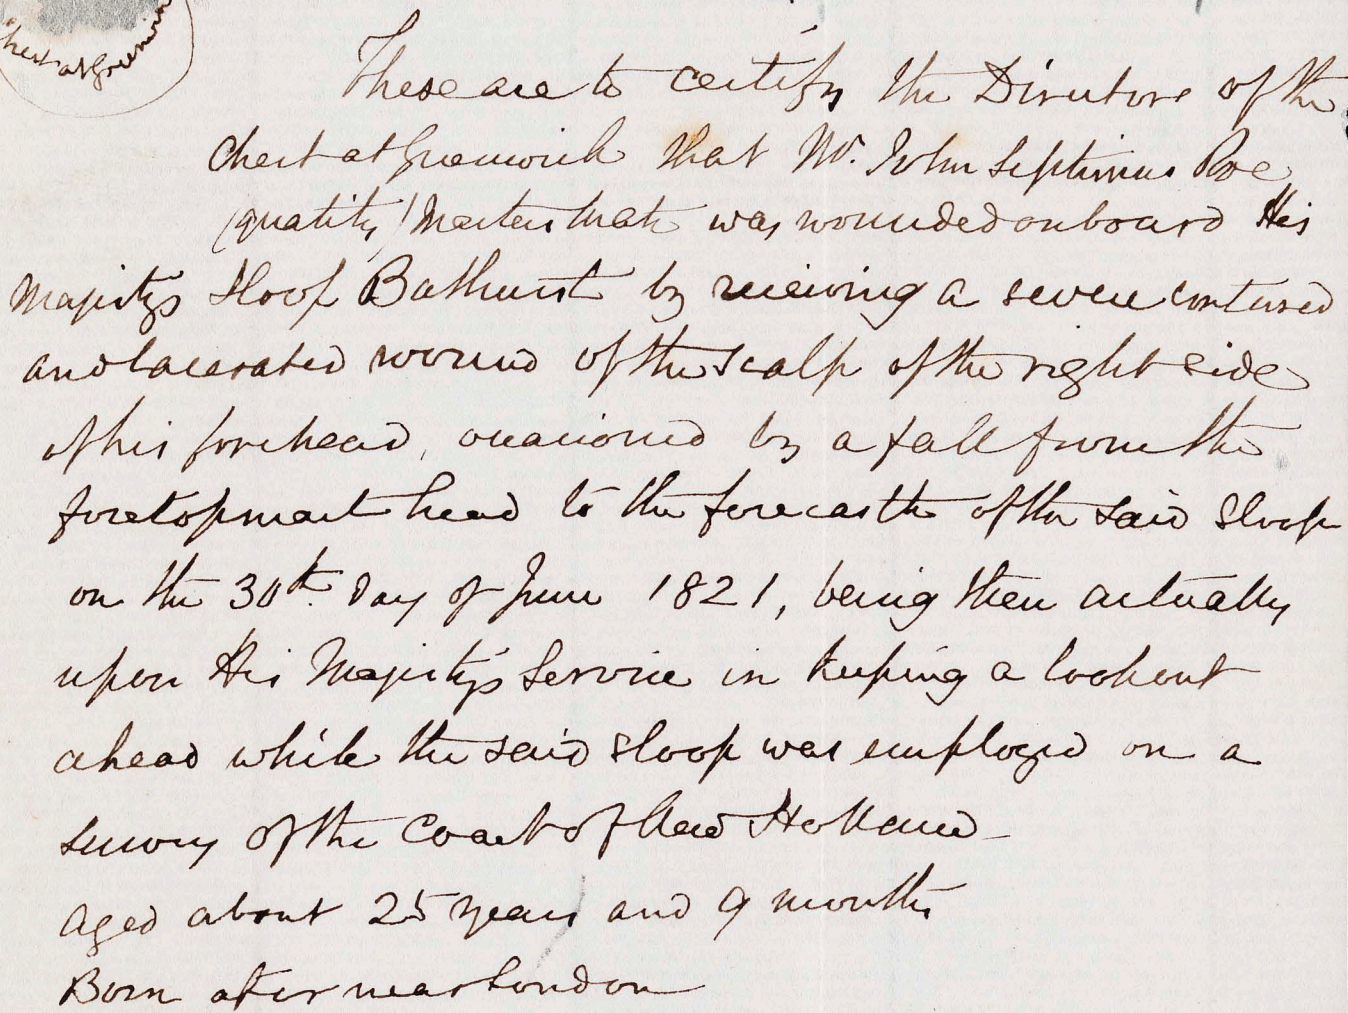 Chest at Greenwich
These are to certify the Directors of the
Chest at Greenwich that Mr. John Septimus Roe
(quality) Masters Mate was wounded onboard His
Majestys Sloop Bathurst by receiving a severe contused
and lacerated wound of the scalp of the right side
of his forehead, occasioned by a fall from the
foretopmast head to the forecastle of the said Sloop
on the 30th. day of June 1821, being then actually
upon His Majesty's Service in keeping a lookout
ahead while the said sloop was employed on a
survey of the Coast of New Holland
aged about 25 years and 9 months
Born at or near London